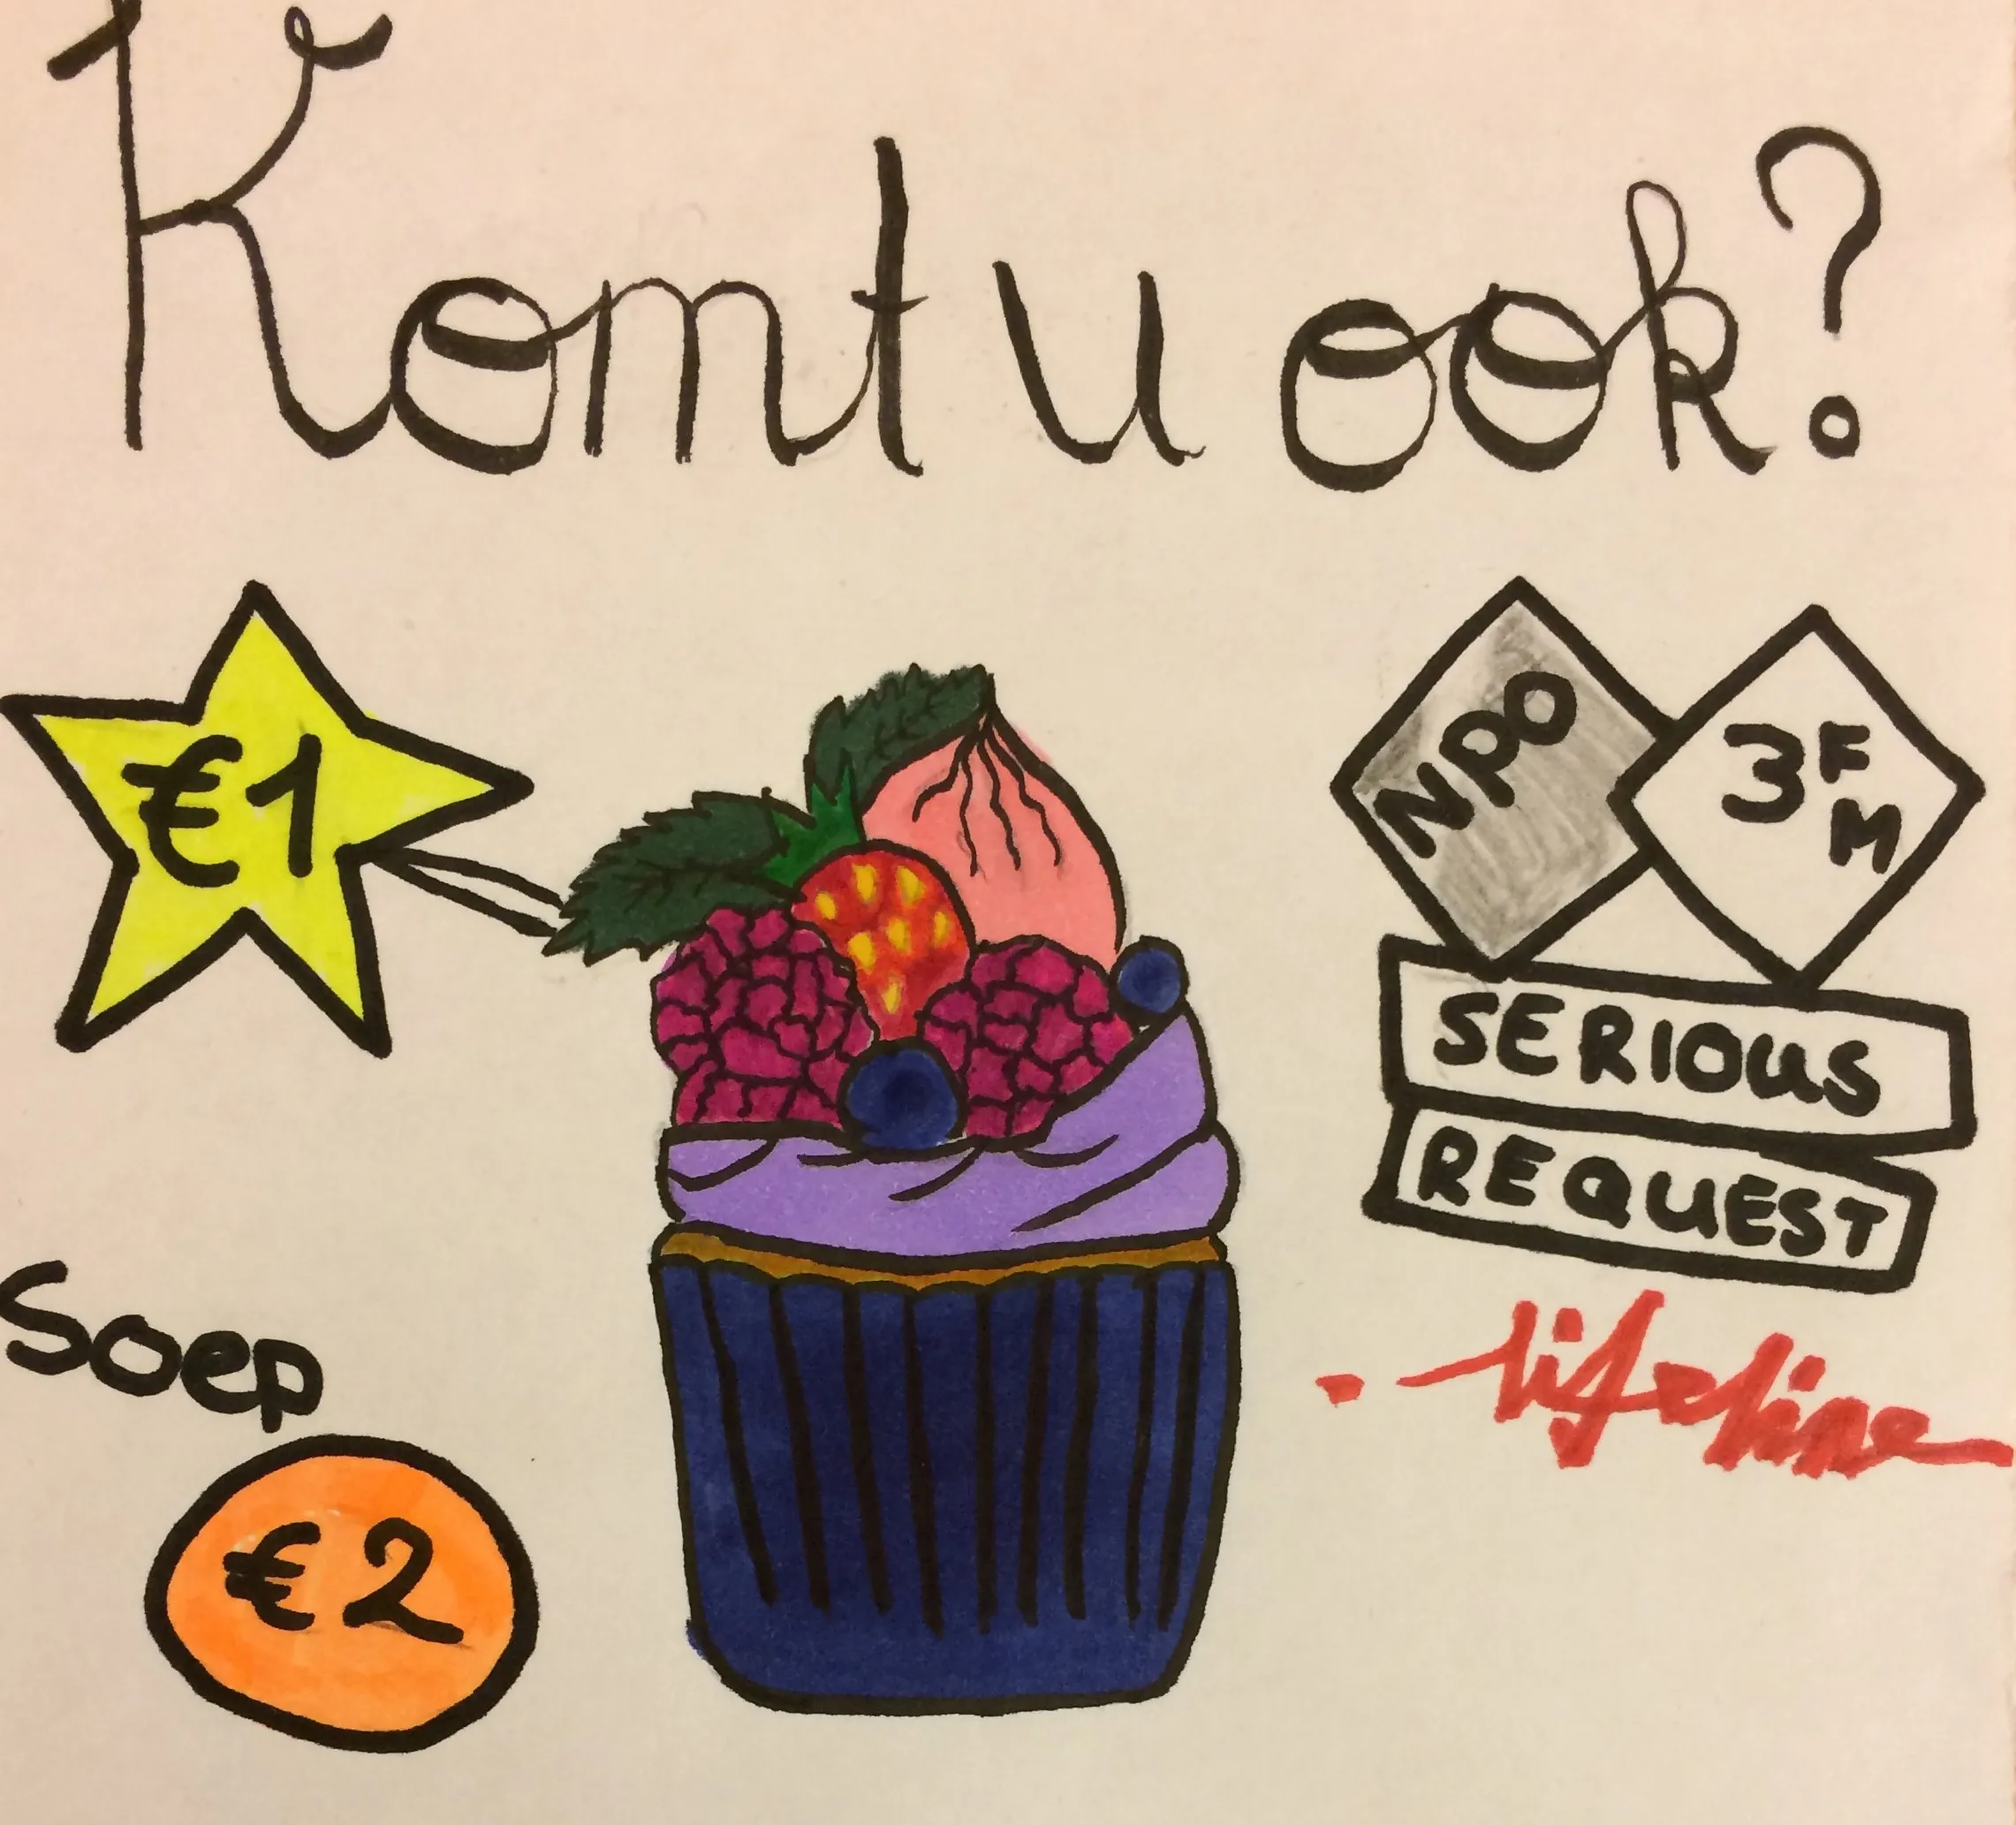 Komt u ook?
€1
NPO
3FM
SERIOUS
REQUEST
lifeline
Soep
€2